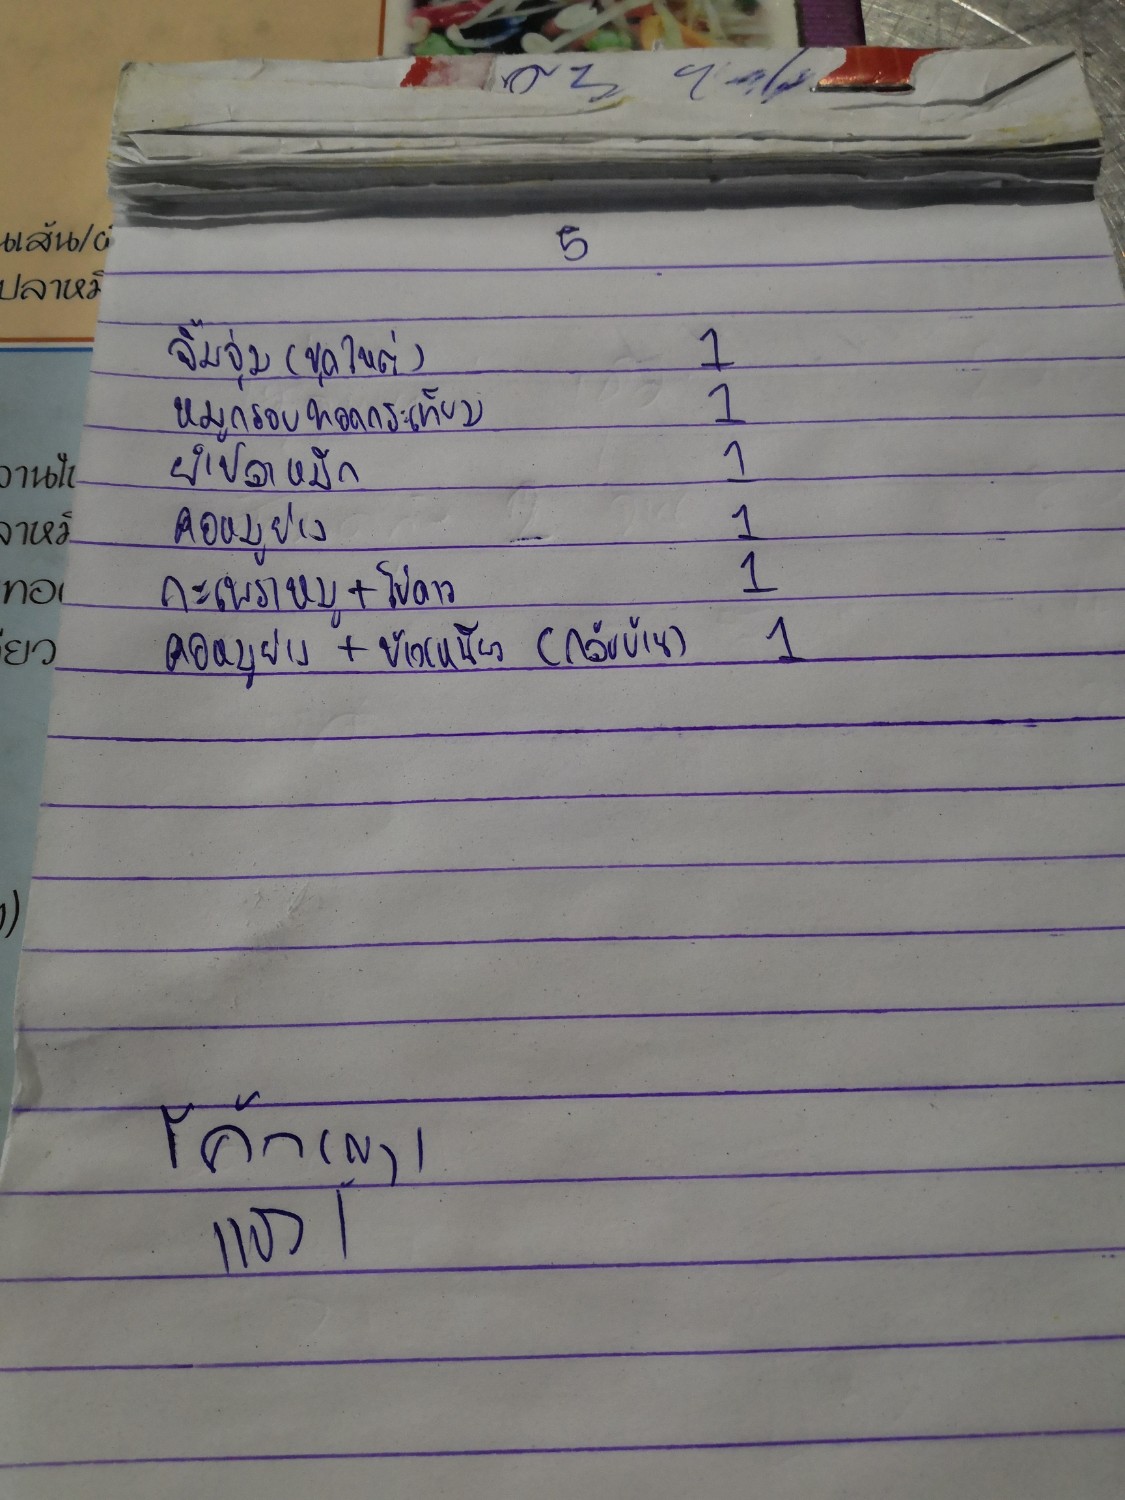 5
จิ้มจุ่ม (ชุดใหญ่) 1
หมูกรอบทอดกระเทียม 1
ยำปลาหมึก 1
คอหมูย่าง 1
กะเพราหมู + ไข่ดาว 1
คอหมูย่าง + ข้าวเหนียว (กลับบ้าน) 1
โค้ก 1
นเส้น/
ปลาหมึ
จานให
ลาหมึ
ทอด
ียว